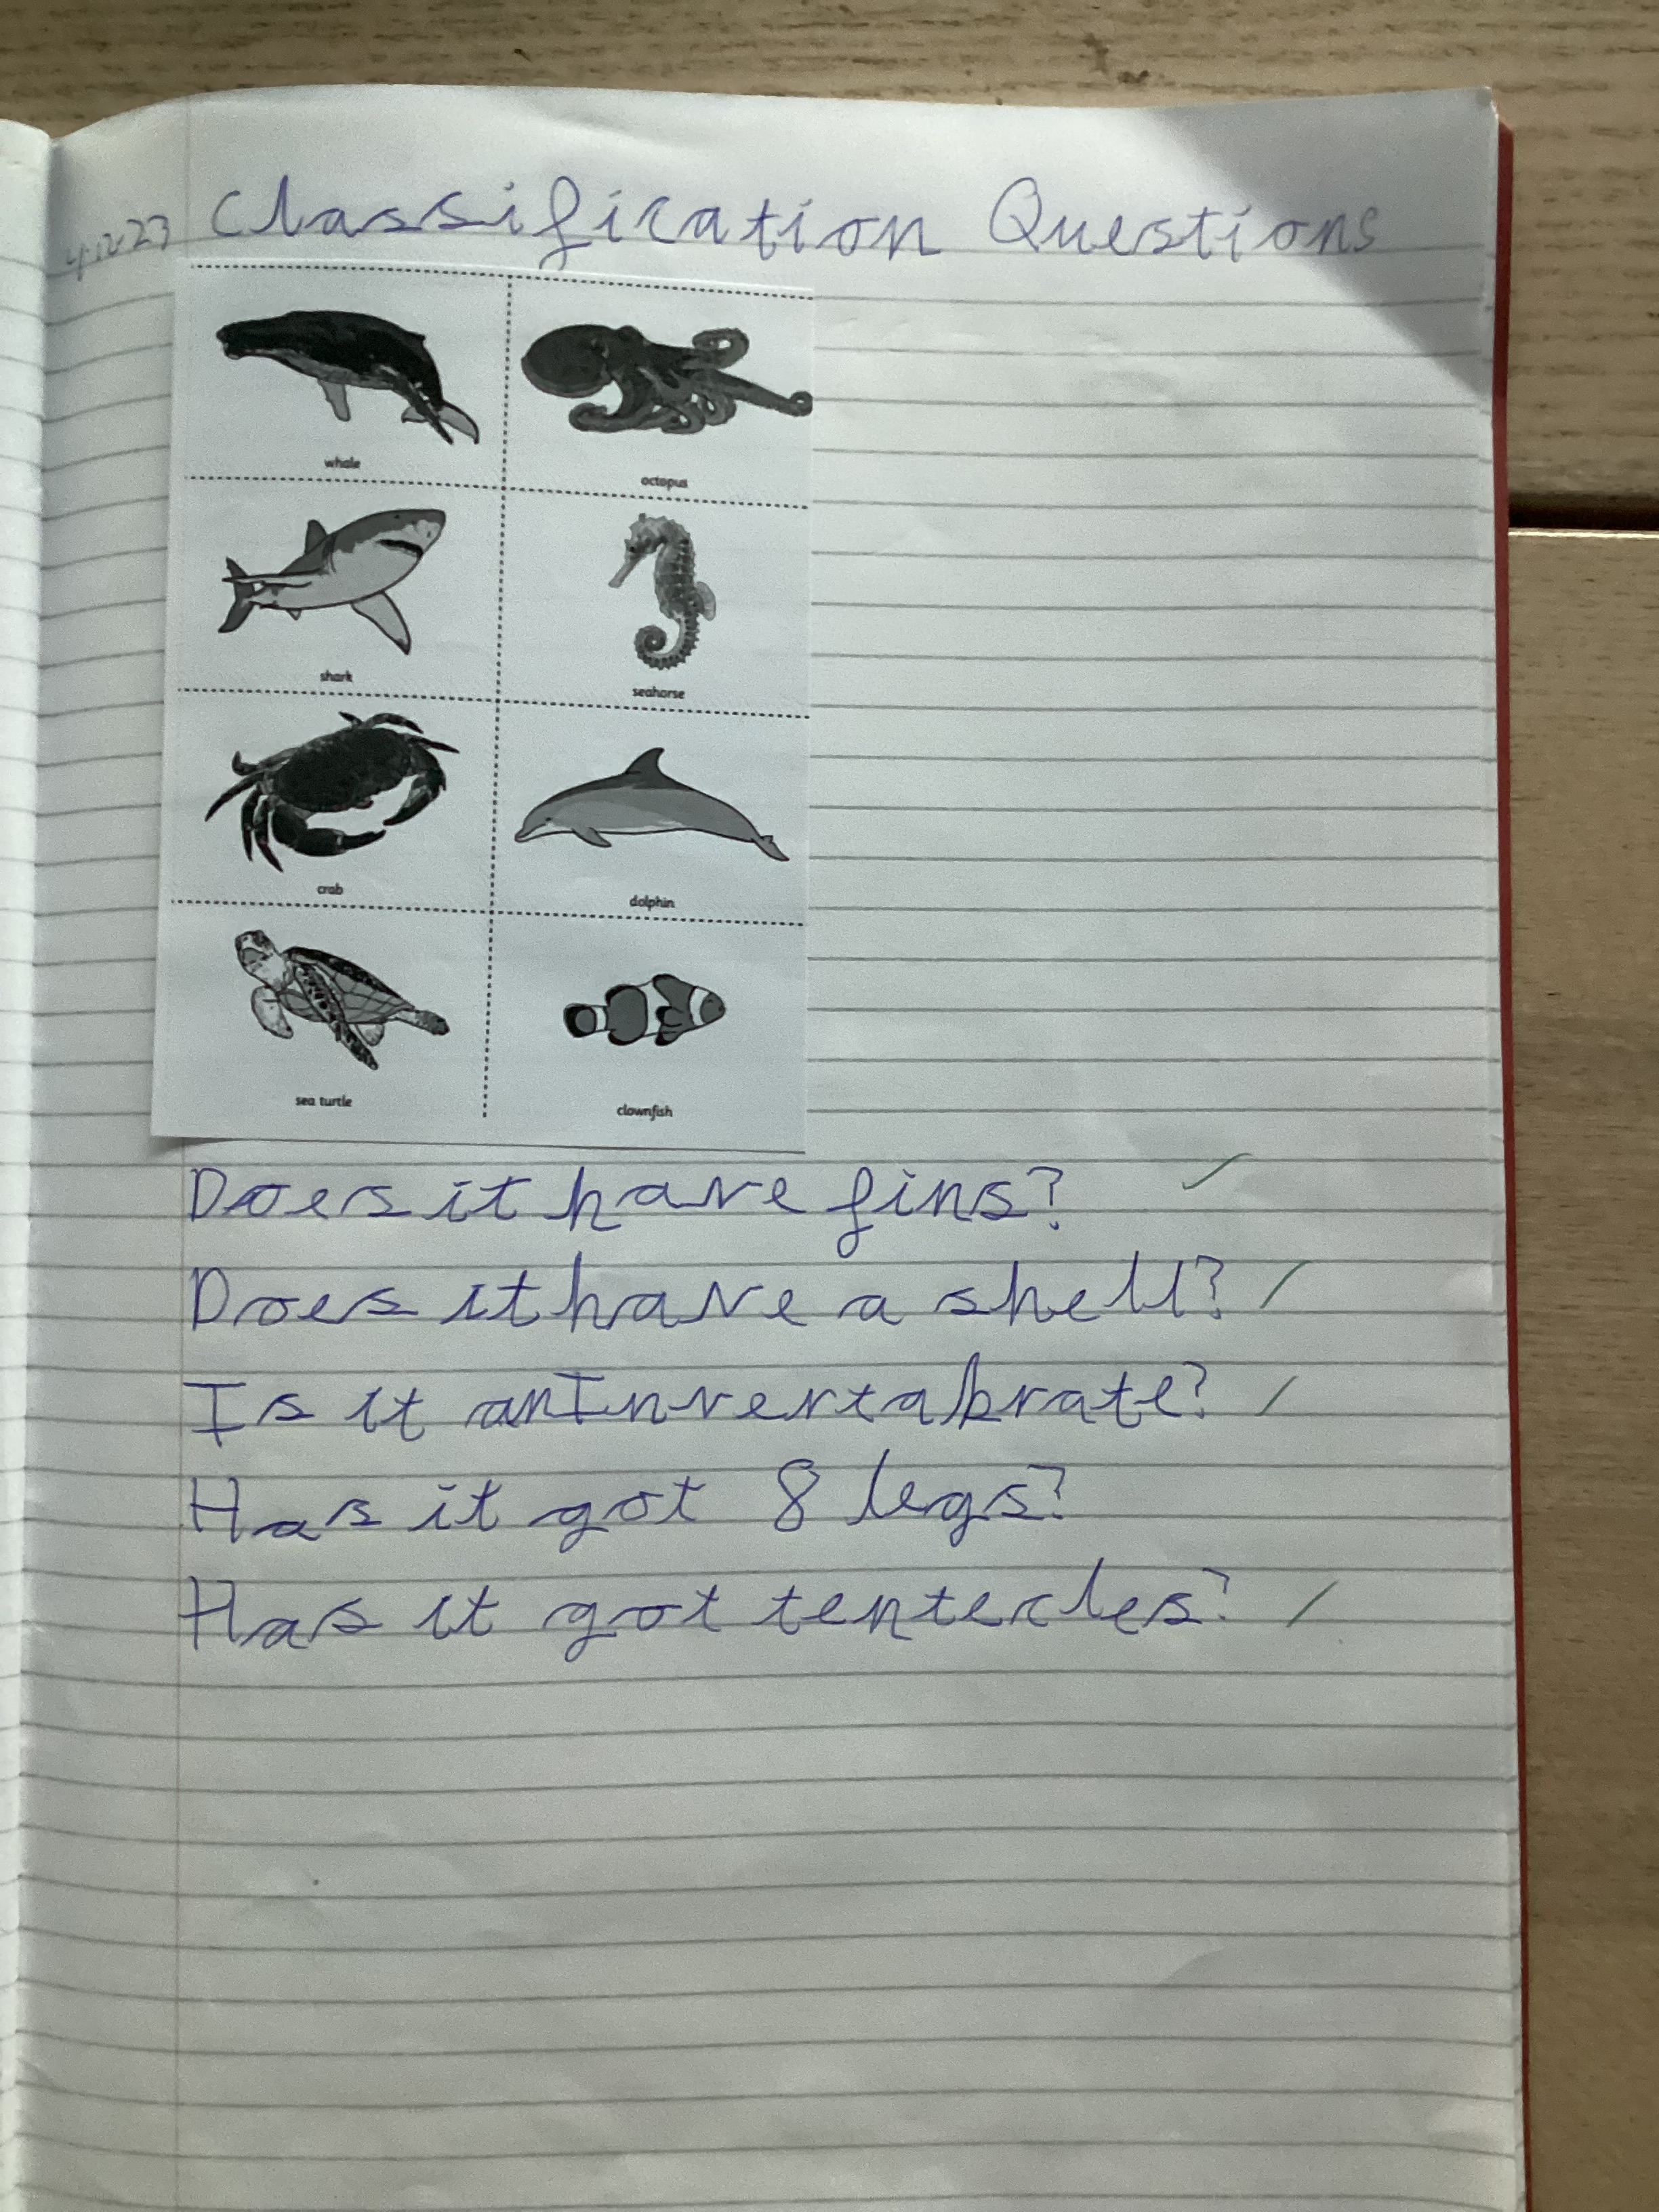 4.12.23 Classification Questions
whale octopus
shark seahorse
crab dolphin
sea turtle clownfish
Does it have fins?
Does it have a shell?
Is it an Invertabrate?
Has it got 8 legs?
Has it got tentecles?